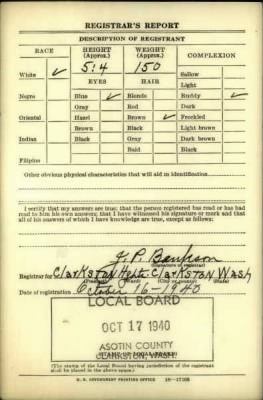 REGISTRAR'S REPORT
DESCRIPTION OF REGISTRANT
RACE HEIGHT (Approx.) WEIGHT (Approx.) COMPLEXION
White ✓ 5:4 150 Sallow
EYES HAIR Light
Negro Blue ✓ Blonde Ruddy ✓
Gray Red Dark
Oriental Hazel Brown ✓ Freckled
Brown Black Light brown
Indian Black Gray Dark brown
Bald Black
Filipino
Other obvious physical characteristics that will aid in identification
I certify that my answers are true; that the person registered has read or has had
read to him his own answers; that I have witnessed his signature or mark and that
all of his answers of which I have knowledge are true, except as follows:
(Signature of registrar)
Registrar for Clarkston Hgts Clarkston Wash
(Precinct) (Ward) (City or county) (State)
Date of registration October 16-1940
LOCAL BOARD
OCT 17 1940
ASOTIN COUNTY
CLARKSTON, WASH.
(STAMP OF LOCAL BOARD)
(The stamp of the Local Board having jurisdiction of the registrant
shall be placed in the above space.)
U. S. GOVERNMENT PRINTING OFFICE 16-17105